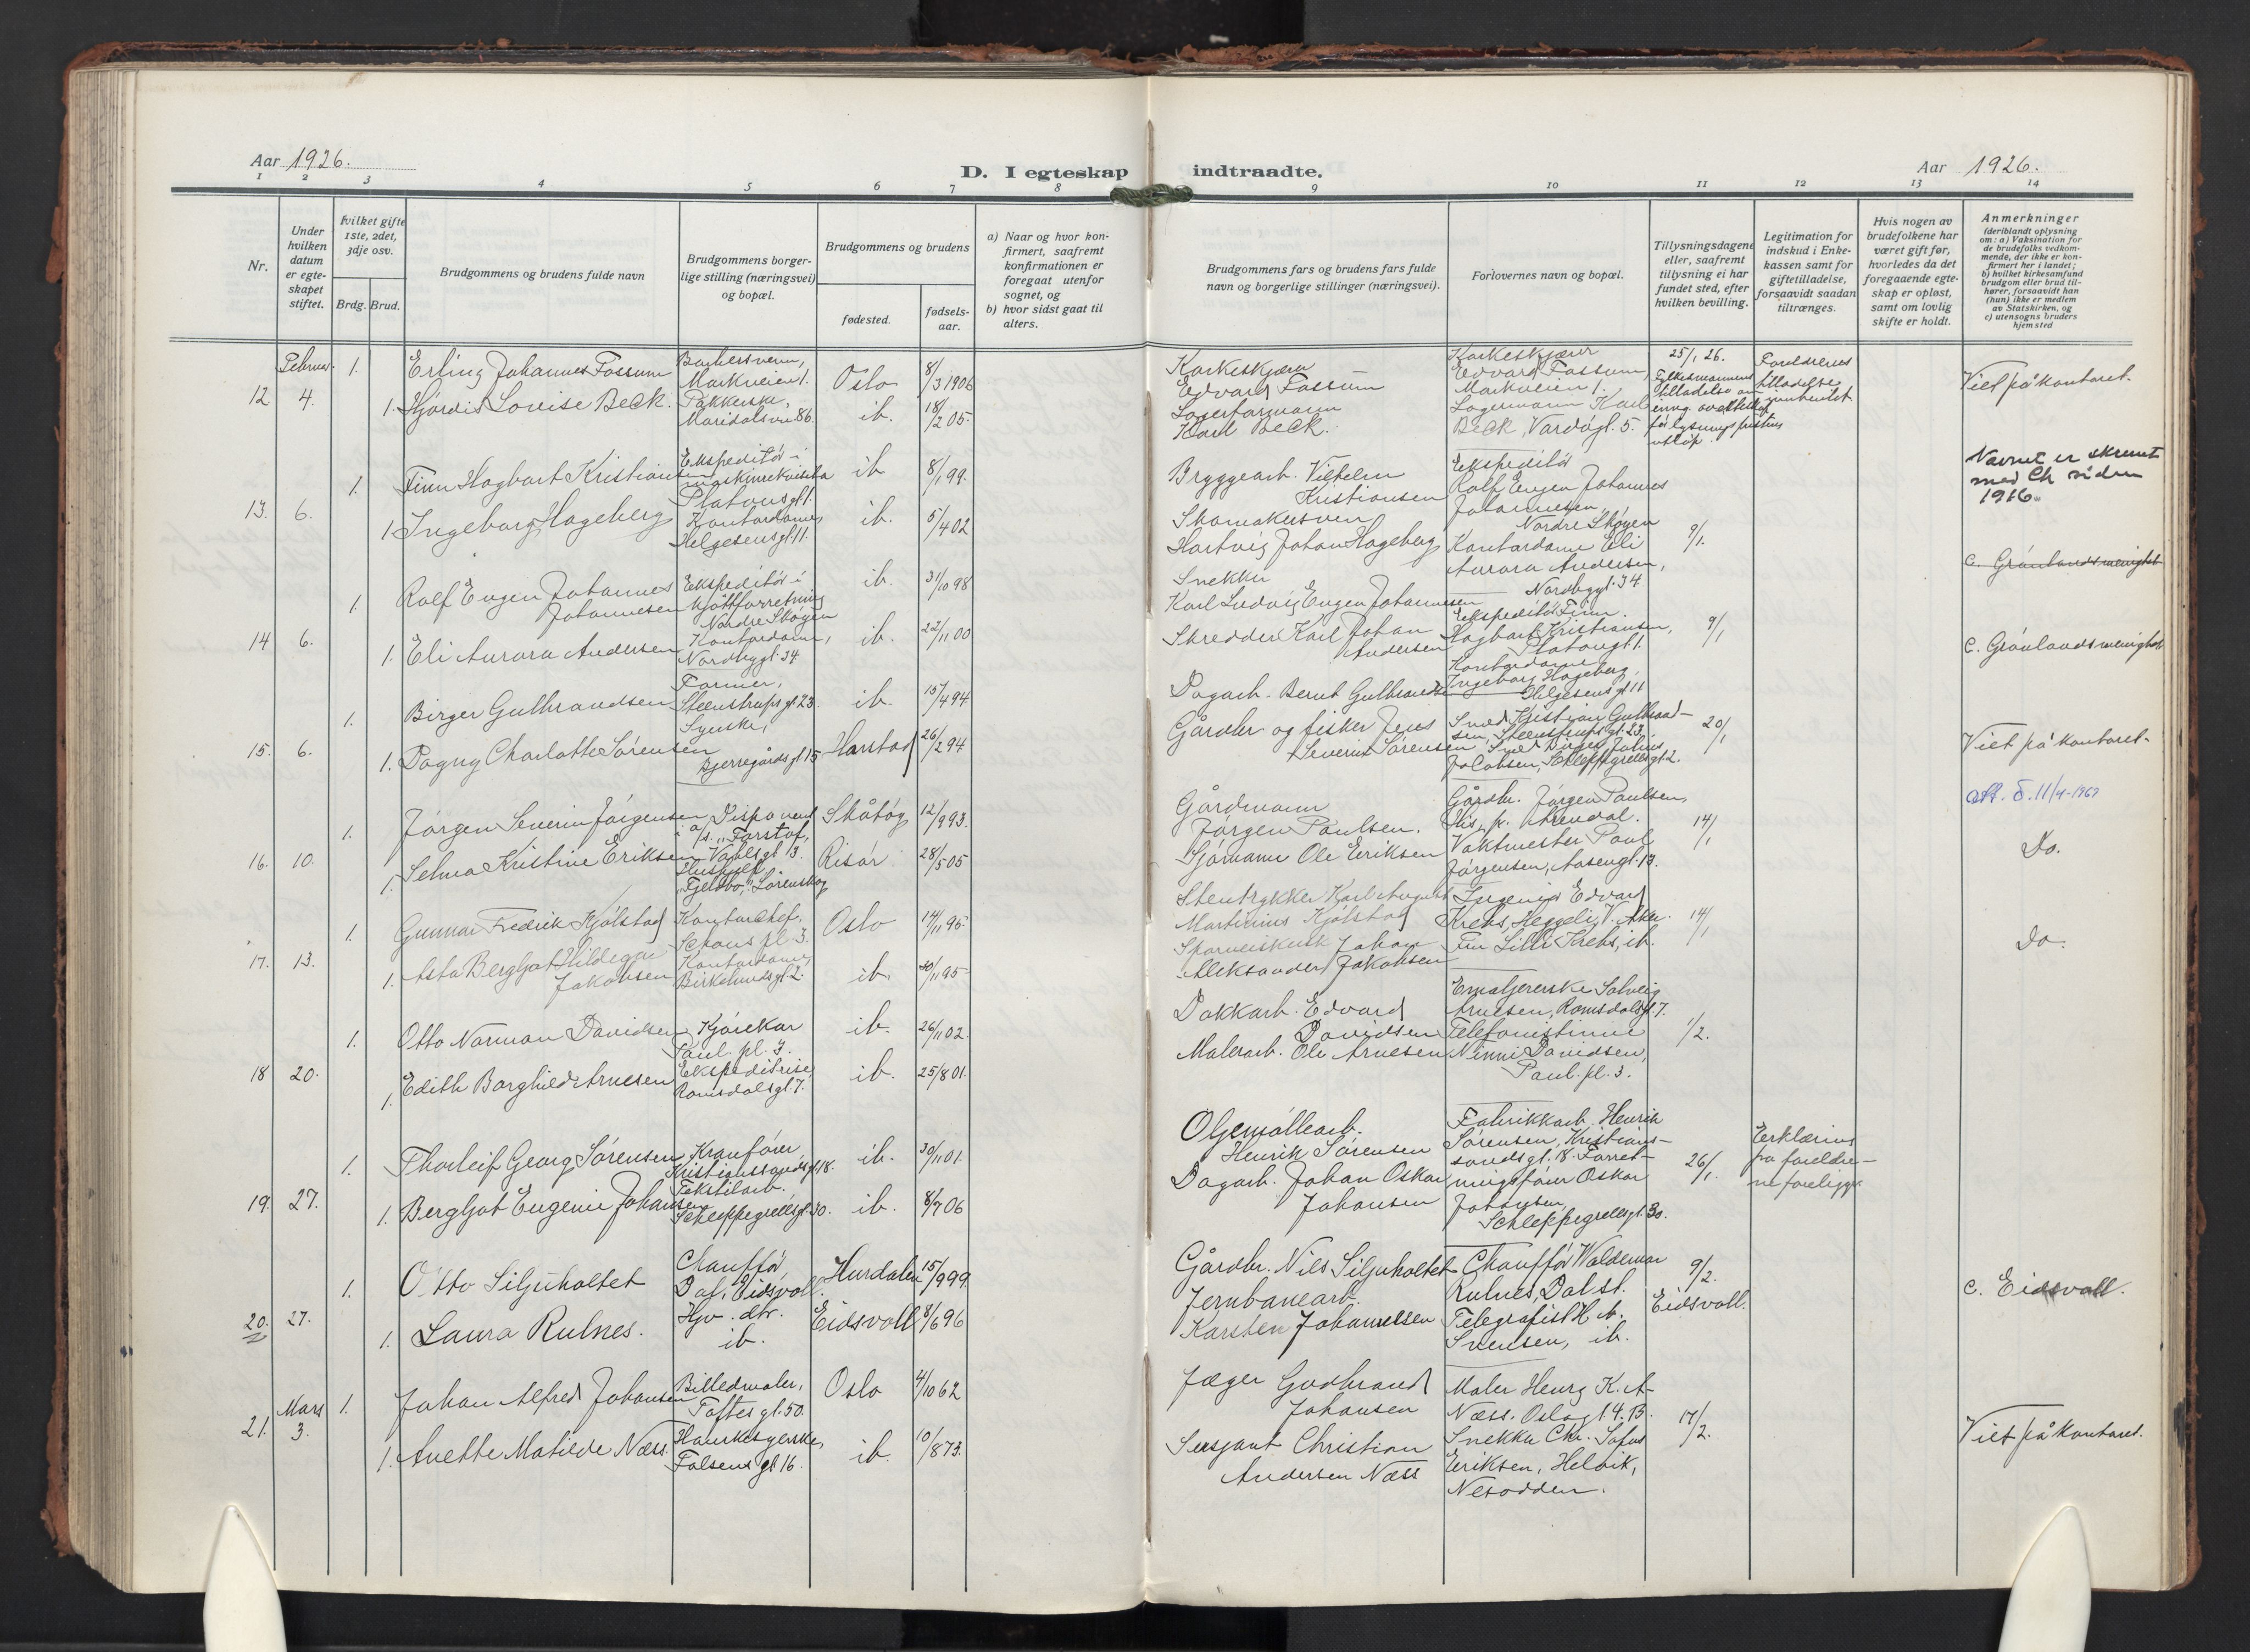 Aar 1926.
D. I egteskap
indtraadte.
Aar 1926.
1 2 3 4 5 6 7 8 9 10 11 12 13 14
Nr.
Under hvilken datum er egte-skapet stiftet.
Hvilket gifte 1ste, 2det, 3dje osv.
Brdg. Brud.
Brudgommens og brudens fulde navn
Brudgommens borger-lige stilling (næringsvei) og bopæl.
Brudgommens og brudens
fødested.
fødsels-aar.
a) Naar og hvor kon-firmert, saafremt konfirmationen er foregaat utenfor sognet, og
b) hvor sidst gaat til alters.
Brudgommens fars og brudens fars fulde navn og borgerlige stillinger (næringsvei).
Forlovernes navn og bopæl.
Tillysningsdagene eller, saafremt tillysning ei har fundet sted, efter hvilken bevilling.
Legitimation for indskud i Enke-kassen samt for giftetilladelse, forsaavidt saadan tiltrænges.
Hvis nogen av brudefolkene har været gift før, hvorledes da det foregaaende egte-skap er opløst, samt om lovlig skifte er holdt.
Anmerkninger
(deriblandt oplysning om: a) Vaksination for de brudefolks vedkom-mende, der ikke er kon-firmert her i landet;
b) hvilket kirkesamfund brudgom eller brud til-hører, forsaavidt han (hun) ikke er medlem av Statskirken, og
c) utensogns bruders hjemsted
12
Februar
4.
1.
Erling Johannes Fossum
Barbersvenn,
Markveien 1.
Oslo
8/3 1906
1. Hjørdis Lovise Beck.
Pakkerske,
Maridalsvn. 86.
ib.
18/2 05.
Korkeskjærer
Edvard Fossum
Lagerformann
Karl Beck.
Korkeskjærer
Edvard Fossum,
Markveien 1.
Lagermann Karl
Beck, Vardøgt. 5.
25/1 26.
Fylkesmannens
tilladelse
Foreldrenes
tilladelse
Viet på kontoret.
13. 6.
1.
Finn Hagbart Kristiansen
Ekspeditør i
Platousgt. 1.
ib
8/1 99.
1. Ingeborg Hageberg
Kontordame,
Helgesensgt. 11.
ib.
5/4 02
Bryggearb. Vilhelm
Kristiansen
Skomakersven
Hartvig Johan Hageberg
Ekspeditør
Rolf Eugen Johannes
Johannesen,
Nordre Skøyen
Kontordame Eli
Aurora Andersen,
Nordbygt. 34.
9/1.
Navnet er skrevet
med Ch siden
1916.
C. Grønlands menighet
14 6.
1.
Rolf Eugen Johannes
Johannesen
Ekspeditør i
kjøttforretning
Nordre Skøyen
ib.
31/10 98
1. Eli Aurora Andersen
Kontordame,
Nordbygt. 34.
ib.
22/11 00
Snekker
Karl Ludvig Eugen Johannesen
Skredder Karl Johan
Andersen
Ekspeditør Finn
Hagbart Kristiansen,
Platousgt. 1.
Kontordame
Ingeborg Hageberg,
Helgesens gt. 11
9/1
C. Grønlands menighet
15. 6.
1.
Birger Gulbrandsen
Former,
Steenstrups gt. 23.
ib.
15/4 94
1. Dagny Charlotte Sørensen
Syerske,
Bjerregårds gt. 15
Harstad
26/2 94
Dagarb. Bernt Gulbrandsen
Gårdbr. og fisker Jens
Severin Sørensen
Smed Kristian Gulbrand-
sen, Steenstrups gt. 23.
Smed Birger Julius
Jacobsen, Schleppgrellsgt. 2.
20/1
Viet på kontoret.
16. 10.
1.
Jørgen Severin Jørgensen
Disponent
i a/s. "Forstof,"
Vahlsgt. 3.
Skåtøy
12/9 93.
1. Selma Kristine Eriksen
Hushjelp,
"Fjeldbo," Lørenskog
Risør
28/5 05
Gårdmann
Jørgen Paulsen.
Sjømann Ole Eriksen
Gårdbr. Jørgen Paulsen,
His, p. Arendal.
Vaktmester Paul
Jørgensen, Aasengt. 13.
14/1
att. d. 11/4-1969
Do.
17. 13.
1.
Gunnar Fredrik Kjølstad
Kontorchef,
Schous pl. 3.
Oslo
14/11 95.
1. Asta Bergljot Hildegar
Jakobsen
Kontordame,
Birkelundsgt. 2.
ib.
30/11 95
Stentrykker Karl August
Martinius Kjølstad
Sporveiskusk Johan
Aleksander Jakobsen
Ingeniør Edvard
Krebs, Heggeli, V. Aker.
Fru Lilli Krebs, ib.
14/1
Do.
18 20.
1.
Otto Norman Davidsen
Kjørekar
Paul. pl. 3.
ib.
26/11 02.
1. Edith Borghild Arnesen
Ekspeditrise,
Romsdalsgt. 7.
ib.
25/8 01.
Dokkarb. Edvard
Davidsen
Malerarb. Ole Arnesen
Emaljererske Solveig
Arnesen, Romsdalsgt. 7.
Telefonistinne
Ninni Davidsen,
Paul. pl. 3.
1/2.
19. 27.
1.
Thorleif Georg Sørensen
Kranfører,
Kristianssandsgt. 18.
ib.
30/11 01.
1. Bergljot Eugenie Johansen
Tekstilarb.
Schleppegrellsgt. 30.
ib.
8/7 06
Oljemøllearb.
Henrik Sørensen
Dagarb. Johan Oskar
Johansen
Fabrikkarb. Henrik
Sørensen, Kristians-
sandsgt. 18. Forret-
ningsfører Oskar
Johansen,
Schleppegrellsgt. 30.
26/1.
Erklæring
fra foreldre-
ne foreligger
20. 27.
1.
Otto Siljuholtet
Chauffør,
Dal, Eidsvoll.
Hurdalen
15/9 99
1. Laura Rulnes.
Hjv. dtr.
ib.
Eidsvoll
8/6 96
Gårdbr. Nils Siljuholtet
Jernbanearb.
Karsten Johannessen
Chauffør Waldemar
Rulnes, Dal st.
Telegrafist H. A.
Svensen, ib.
9/2.
Eidsvoll.
C. Eidsvoll.
21.
Mars
3.
1.
Johan Alfred Johansen
Billedmaler,
Toftes gt. 50.
Oslo
4/10 62
1. Anette Matilde Næss.
Falsens gt. 16.
ib.
10/8 73.
Jæger Gudbrand
Johansen
Sersjant Christian
Andersen Næss
Maler Henry K. A.
Næss. Oslogt. 4. B.
Snekker Chr. Sofus
Eriksen, Helvik,
Nesodden.
17/2.
Viet på kontoret.